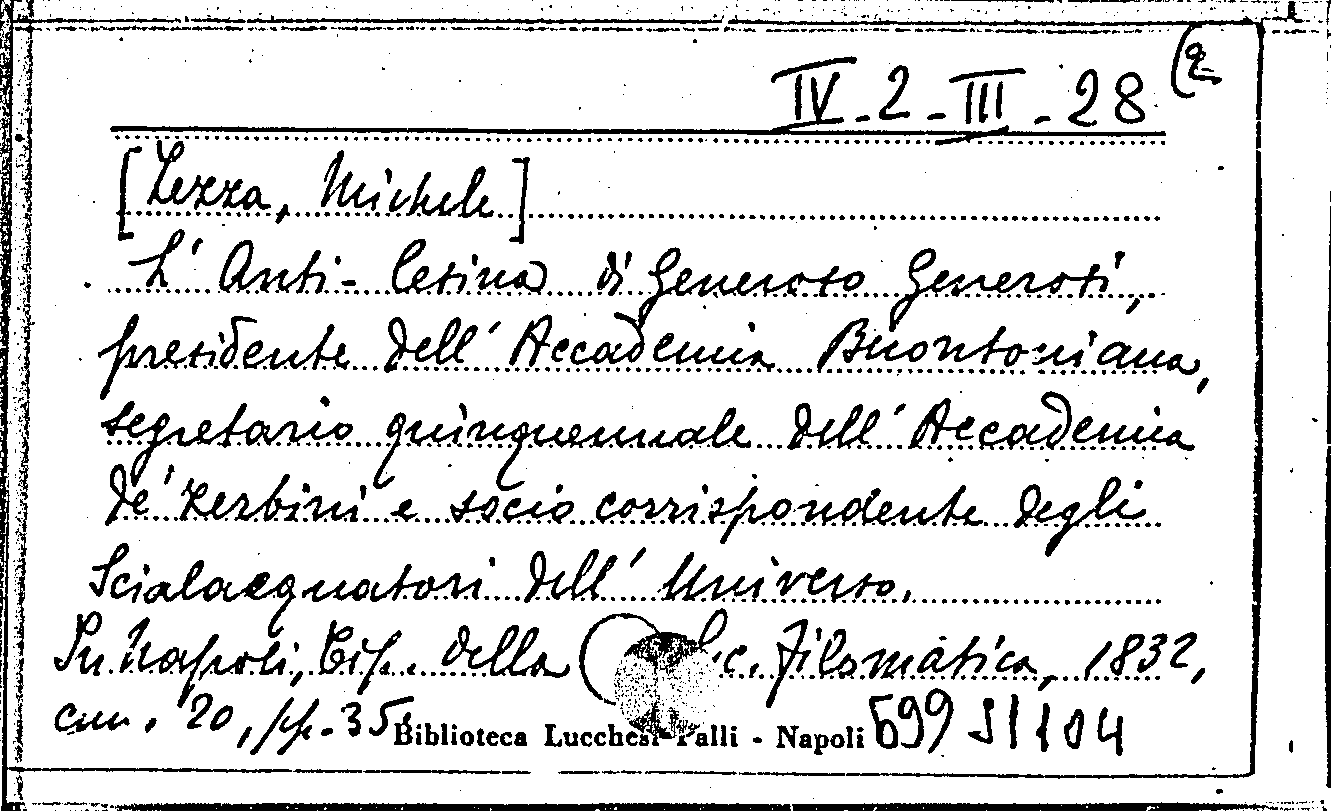 IV-2-III-28 (2
[Zezza, Michele]
L' Anti-Cesina di Generoso Generosi,
presidente dell' Accademia Buontoniana,
segretario quinquennale dell' Accademia
de' Zerbini e socio corrispondente degli
Scialacquatori dell' Universo.
In Napoli, Tip. della Soc. Filomatica, 1832,
cm. 20, pp. 35.
Biblioteca Lucchesi-Palli - Napoli